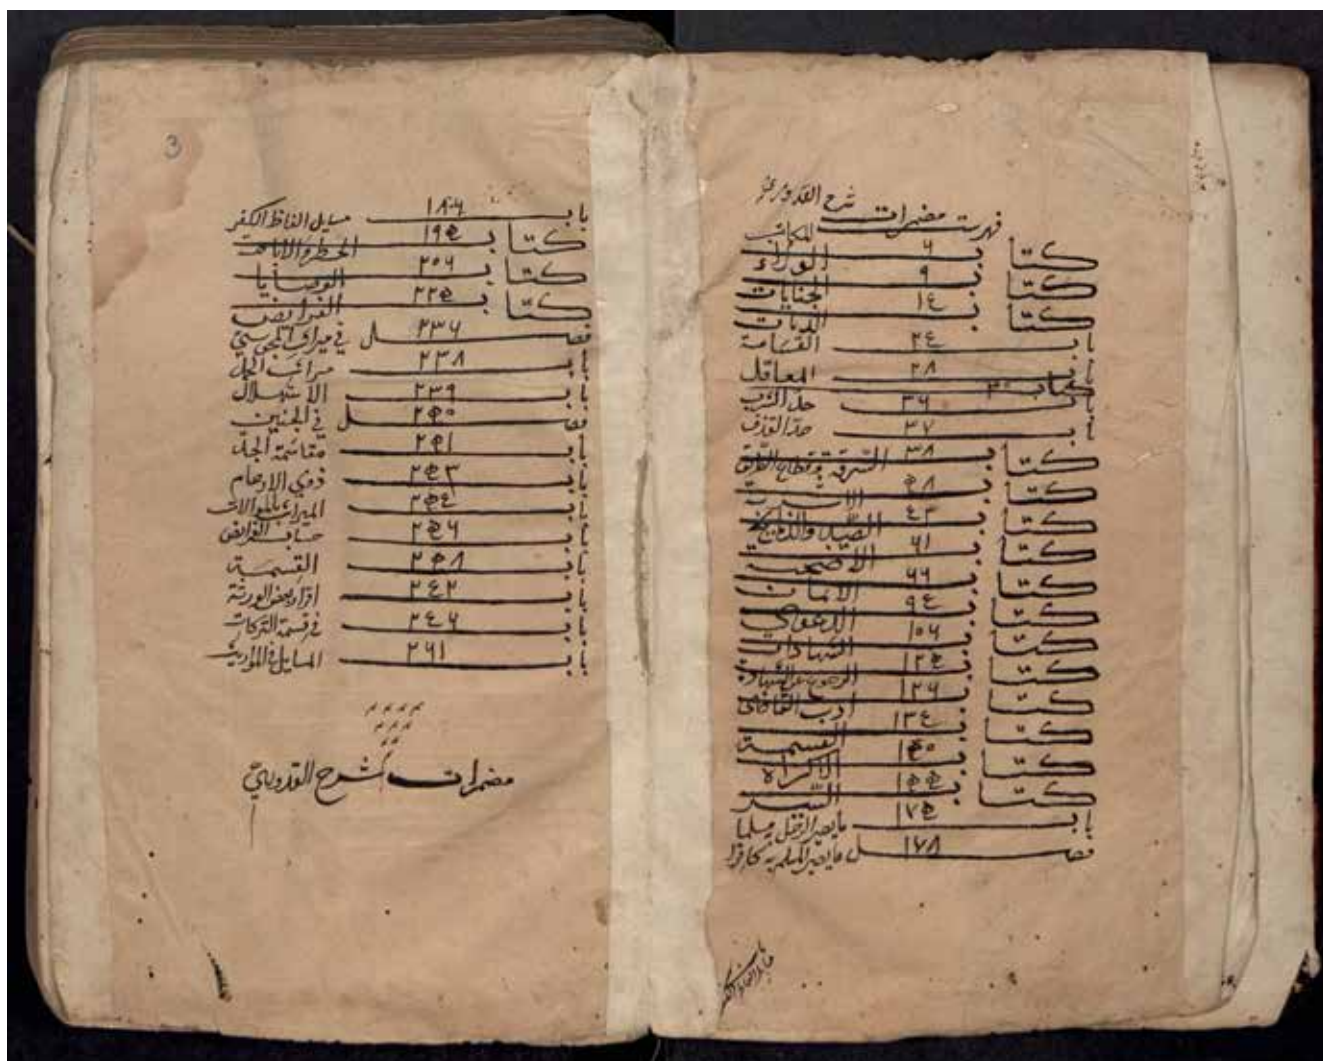 فهرست مضمرات شرح القدوري
كتاب ٦ المكاتب
كتاب ٩ الولاء
كتاب ١٤ الجنايات
الديات
باب ٢٤ القسامة
باب ٢٨ المعاقل
كتاب ٣٠
باب ٣٦ حد الشرب
باب ٣٧ حد القذف
كتاب ٣٨ السرقة وقطاع الطريق
كتاب الاشربة
كتاب ٤٣ الصيد والذبايح
كتاب ٦١ الاضحية
كتاب ٦٦ الايمان
كتاب ٩٤ الدعوي
كتاب ١٠٦ الشهادات
كتاب ١٢٥ الرجوع عن الشهادة
كتاب ١٢٦ ادب القاضي
كتاب ١٣٤ القسمة
كتاب ١٥٠ الاكراه
كتاب ١٥٥ السير
باب ١٧٥ ما يصير الرجل مسلما
فصل ١٧٨ ما يصير المسلم به كافرا
3
باب مسايل الفاظ الكفر
كتاب ١٩٥ الحظر والاباحة
كتاب ٢٠٦ الوصايا
كتاب ٢٢٥ الفرايض
فصل ٢٣٦ في ميراث المجوسي
باب ٢٣٨ ميراث الحمل
باب ٢٣٩ الاستهلال
فصل ٢٥٠ في الجنين
باب ٢٥١ مقاسمة الجد
باب ٢٥٣ ذوي الارحام
باب ٢٥٤ الميراث بالموالات
باب ٢٥٦ حساب الفرايض
باب ٢٥٨ القسمة
باب ٢٤٢ اقرار بعض الورثة
باب ٢٤٦ في قسمة التركات
باب ٢٦١ المسايل في المواريث
مضمرات شرح القدوري